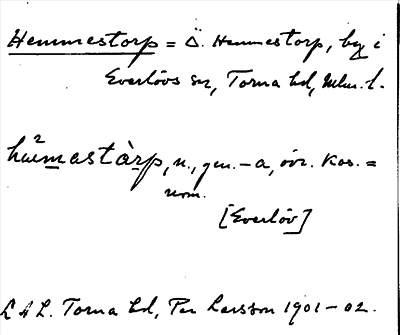 Hemmestorp = Ö. Hemmestorp, by i
Everlövs sn, Torna hd, Mlm. l.
hæ²mastàrp, n., gen. -a, övr. kas. =
nom.
[Everlöv]
L A L. Torna hd, Per Larsson 1901-02.